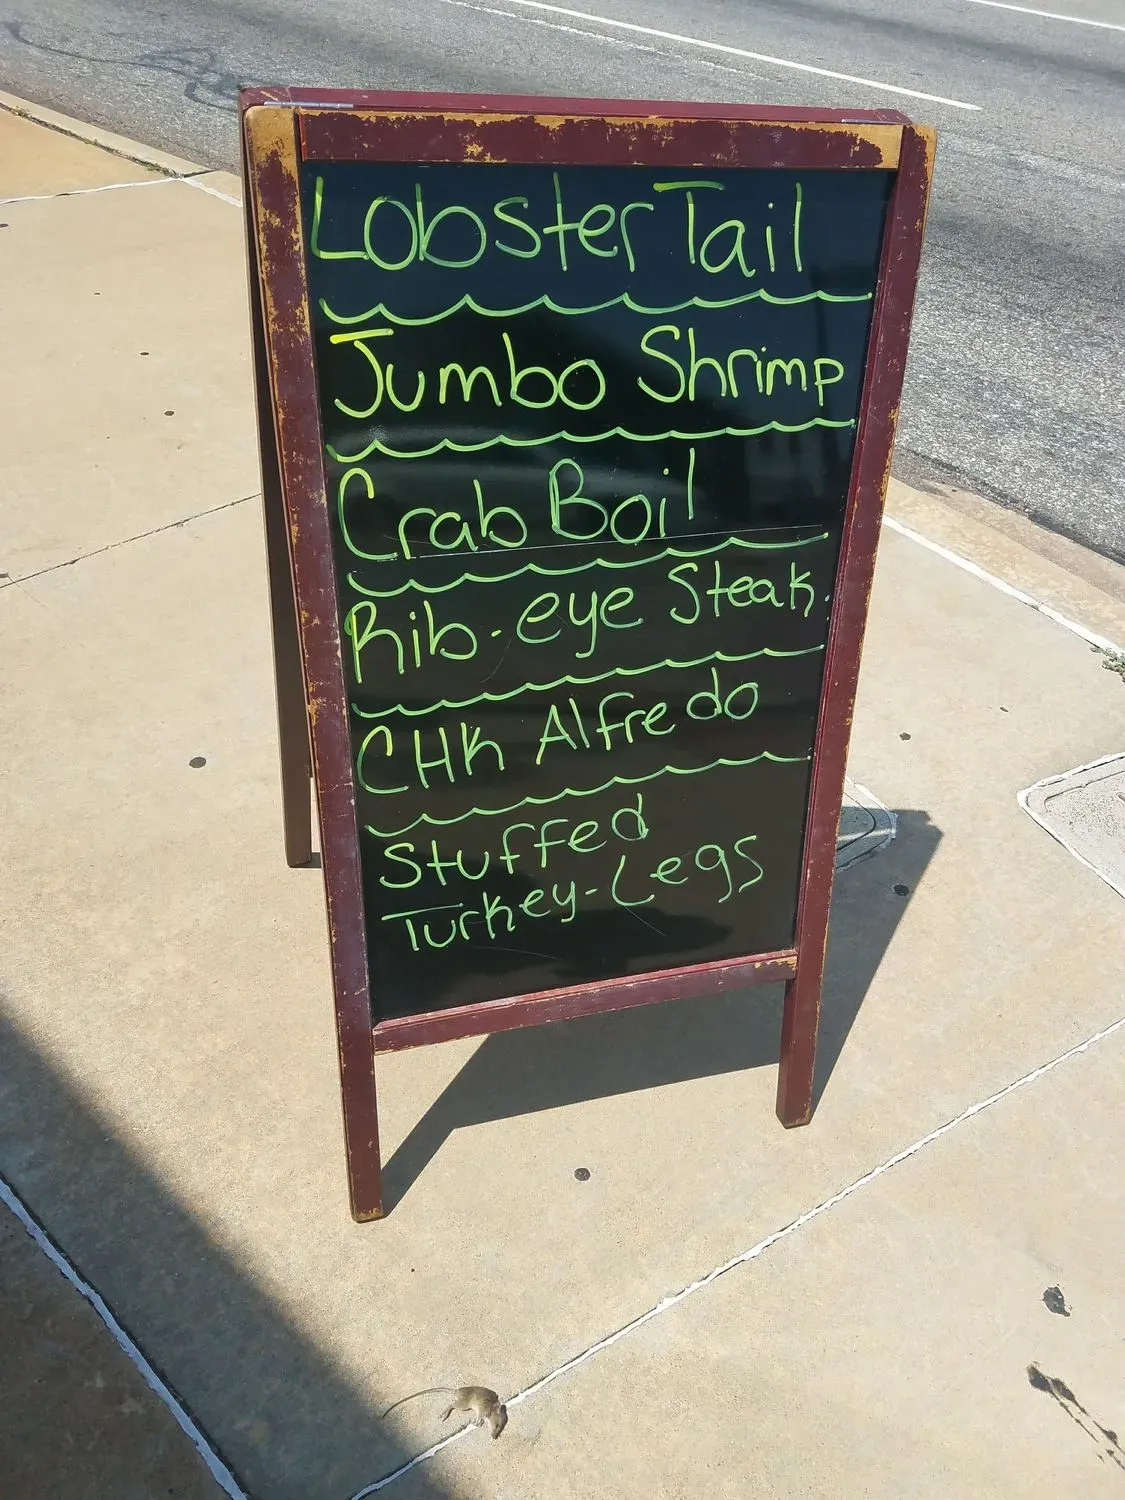 Lobster Tail
Jumbo Shrimp
Crab Boil
Rib-eye Steak.
CHK Alfredo
Stuffed
Turkey-Legs